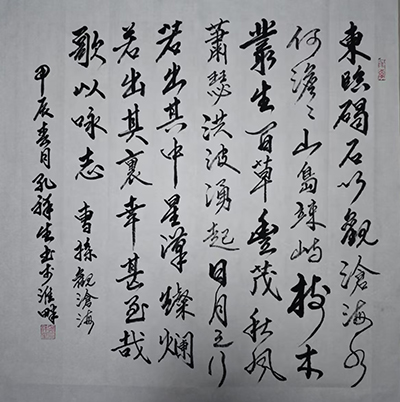 東臨碣石以觀滄海水
何澹々山島竦峙樹木
叢生百草豐茂秋風
蕭瑟洪波湧起日月之行
若出其中星漢燦爛
若出其裏幸甚至哉
歌以咏志 曹操觀滄海
甲辰春月孔祥生书於淮畔